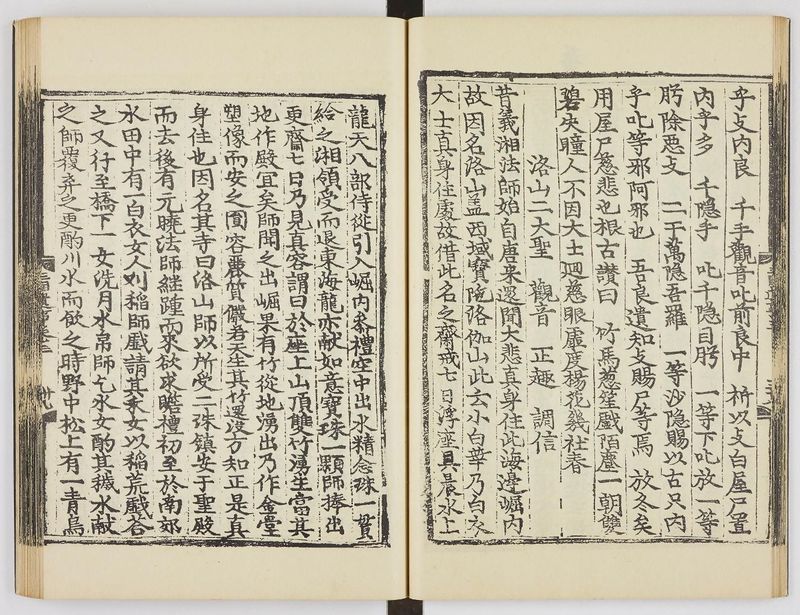 乎攴內良 千手觀音叱前良中 祈以攴白屋尸置
內乎多 千隐手 叱千隐目肹 一等下叱放一等
肹除惡攴 二于萬隐吾羅 一等沙隐賜以古只內
乎叱等邪阿邪也 吾良遺知攴賜尸等焉 放冬矣
用屋尸慈悲也根古 讃曰 竹馬葱笙戲陌塵一朝雙
碧失瞳人不因大士迴慈眼虛度楊花幾社春
洛山二大聖 觀音 正趣 調信
昔義湘法師始自唐来還聞大悲真身住此海邊崛內
故因名洛山盖西域寶陁洛伽山此云小白華乃白衣
大士真身住處故借此名之齋戒七日浮座具晨水上
龍天八部侍從引入崛內叅禮空中出水精念珠一貫
給之湘領受而退東海龍亦献如意寶珠一顆師捧出
更齋七日乃見真容謂曰於座上山頂雙竹湧生當其
地作殿宜矣師聞之出崛果有竹從地湧出乃作金堂
塑像而安之圎容麗質儼若天生其竹還沒方知正是真
身住也因名其寺曰洛山師以所受二珠鎮安于聖殿
而去後有元曉法師継踵而来欲求瞻禮初至於南郊
水田中有一白衣女人刈稲師戲請其禾女以稲荒戲荅
之又行至橋下一女洗月水帛師乞水女酌其穢水献
之師覆弃之更酌川水而飲之時野中松上有一青鳥